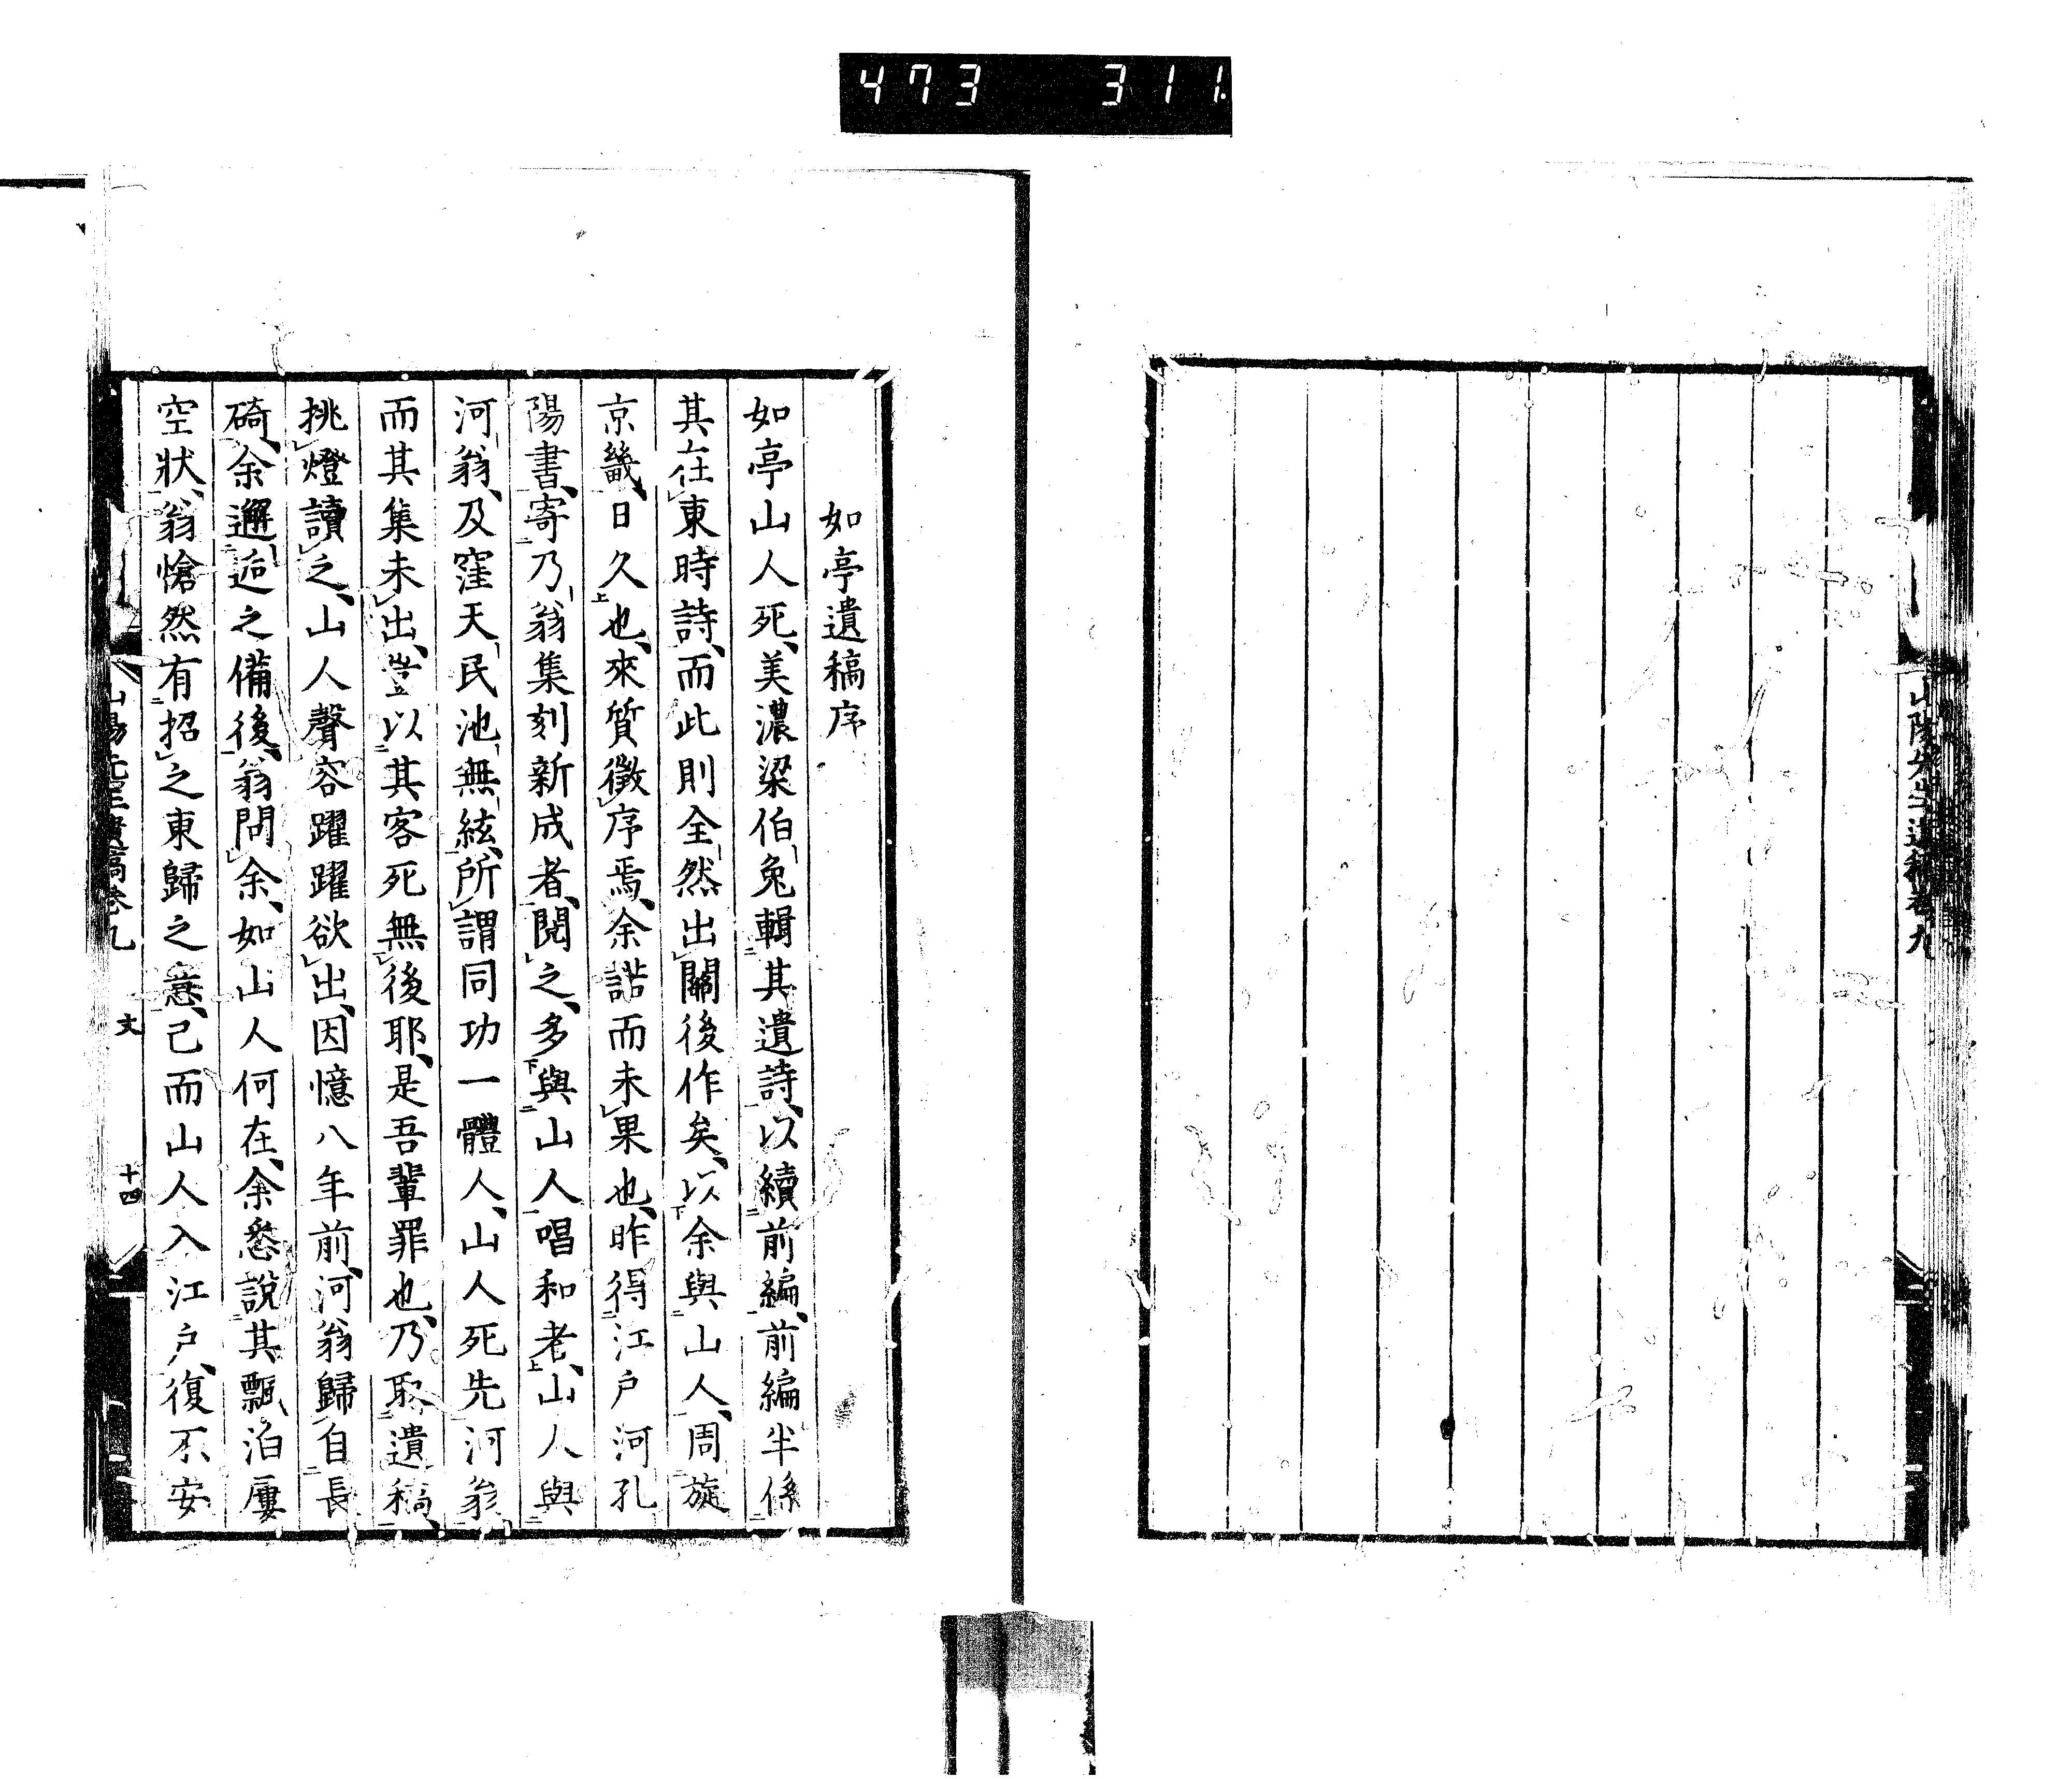 473 311
山陽先生遺稿卷九
如亭遺稿序
如亭山人死、美濃梁伯兔輯其遺詩、以續前編、前編半係
其在東時詩、而此則全然出關後作矣、以余與山人、周旋
京畿、日久也、來質徵序焉、余諾而未果也、昨得江戶河孔
陽書、寄乃翁集刻新成者、閱之、多與山人唱和老、山人與
河翁、及窪天民池無絃、所謂同功一體人、山人死先河翁
而其集未出、豈以其客死無後耶、是吾輩罪也、乃取遺稿、
挑燈讀之、山人聲容躍躍欲出、因憶八年前、河翁歸自長
碕、余邂逅之備後、翁問余、如山人何在、余悉說其飄泊屢
空狀、翁愴然有招之東歸之意、已而山人入江戶、復不安
山陽先生遺稿卷九 文 十四